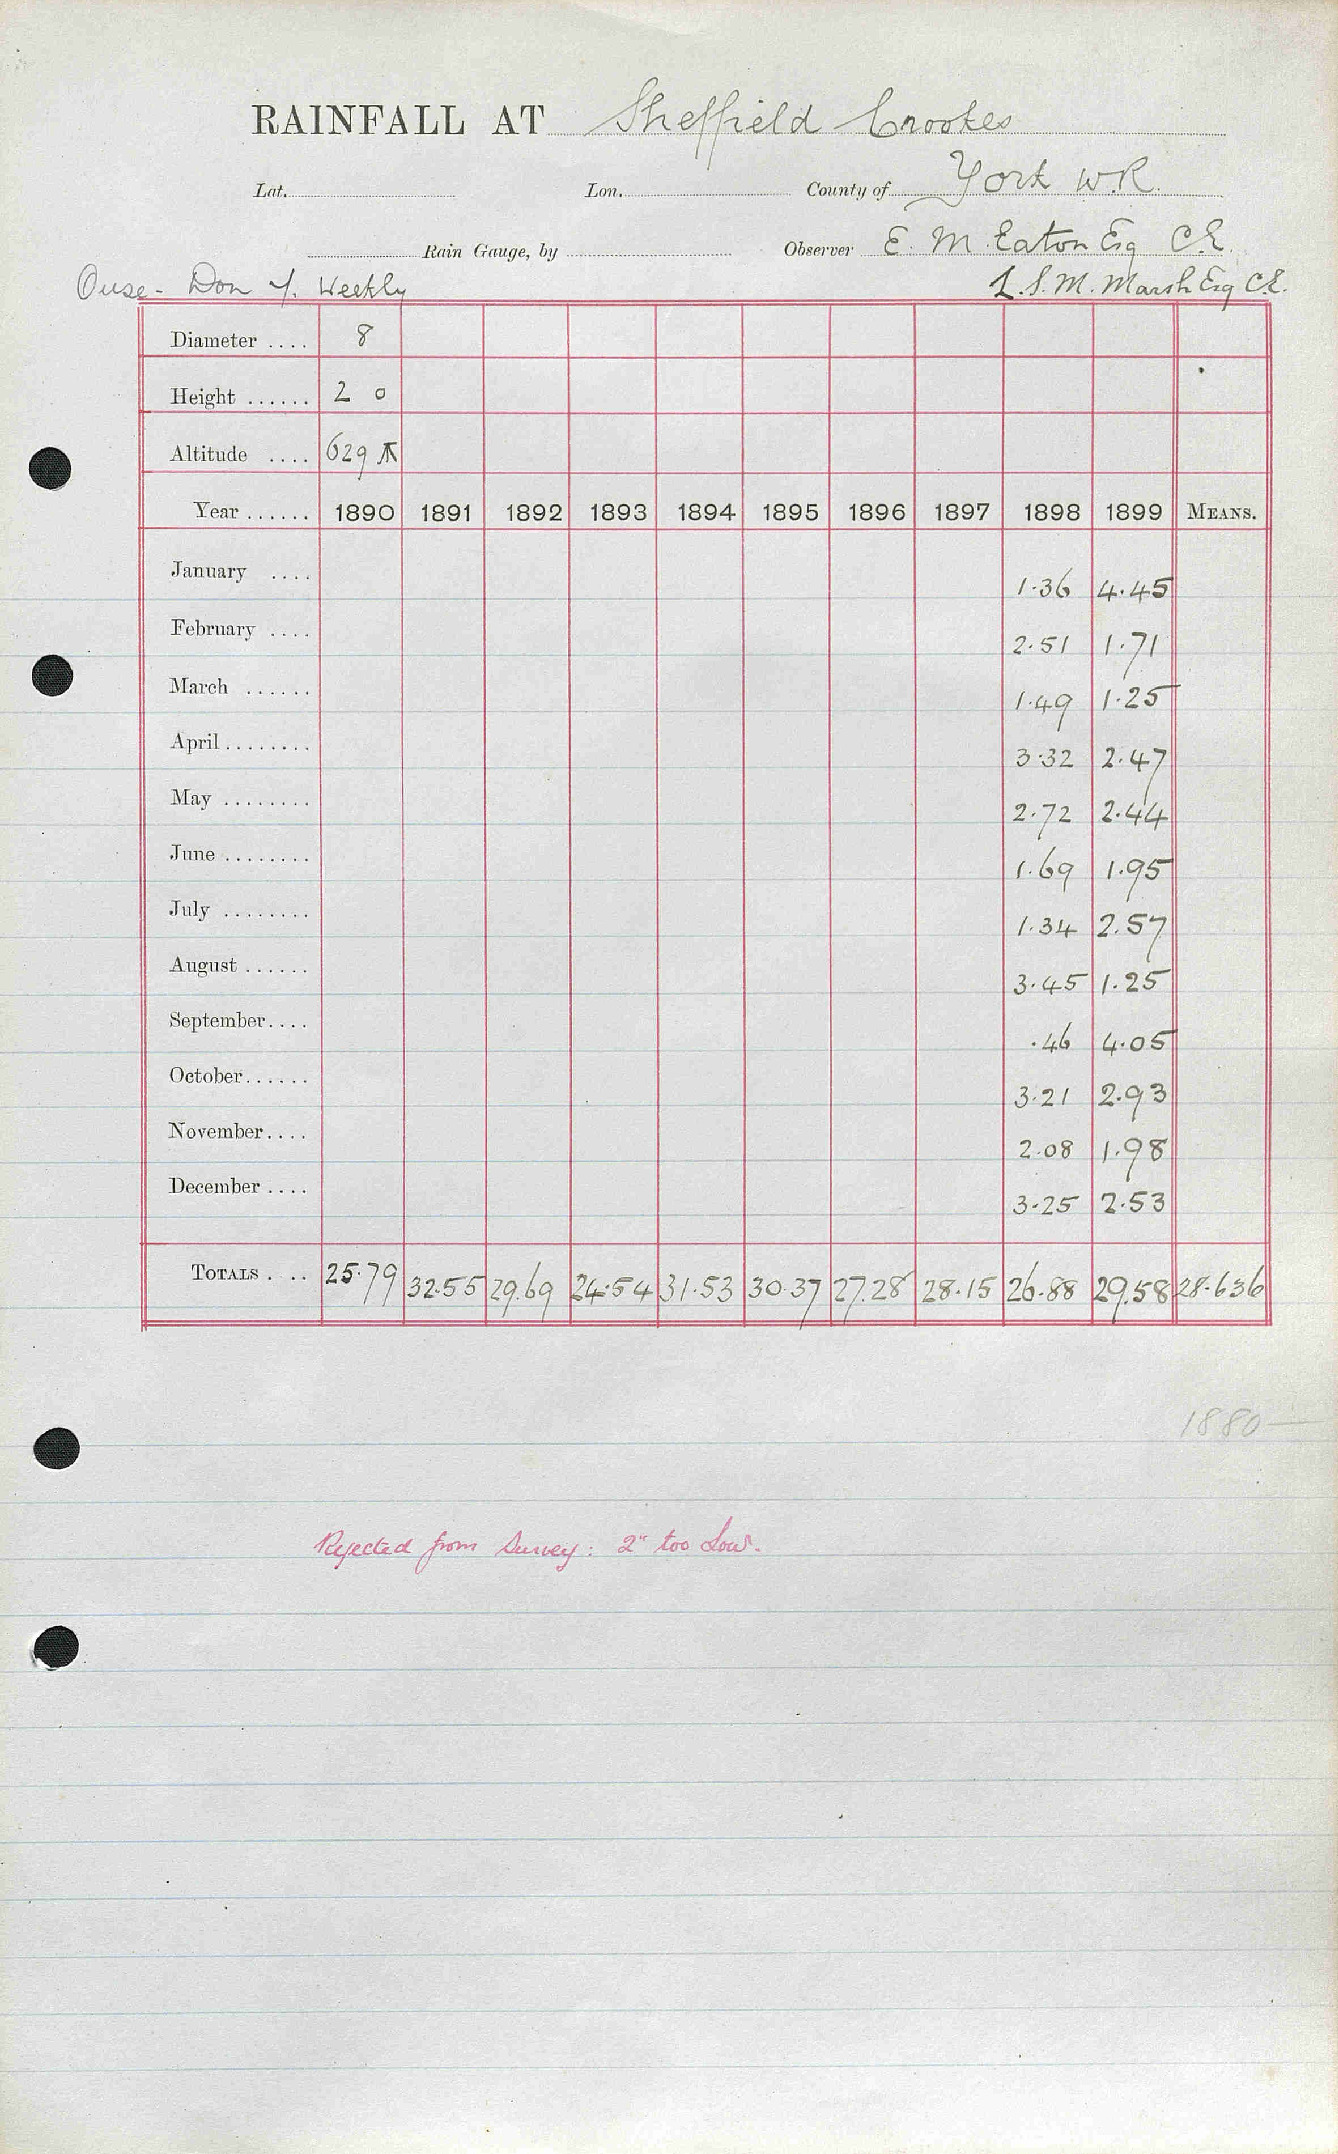 RAINFALL AT Sheffield Crookes
Lat. Lon. County of York W.R.
Rain Gauge, by Observer E. M. Eaton Esq C.E.
Ouse - Don Y. Weekly L. S. M. Marsh Esq C.E.
Diameter .... 8
Height ...... 2 0
Altitude .... 629
Year ...... 1890 1891 1892 1893 1894 1895 1896 1897 1898 1899 MEANS.
January .... 1.36 4.45
February .... 2.51 1.71
March ...... 1.49 1.25
April ........ 3.32 2.47
May ........ 2.72 2.44
June ........ 1.69 1.95
July ........ 1.34 2.57
August ...... 3.45 1.25
September.... .46 4.05
October...... 3.21 2.93
November.... 2.08 1.98
December .... 3.25 2.53
TOTALS . .. 25.79 32.55 29.69 24.54 31.53 30.37 27.28 28.15 26.88 29.58 28.636
1880—
Rejected from Survey: 2" too Low.